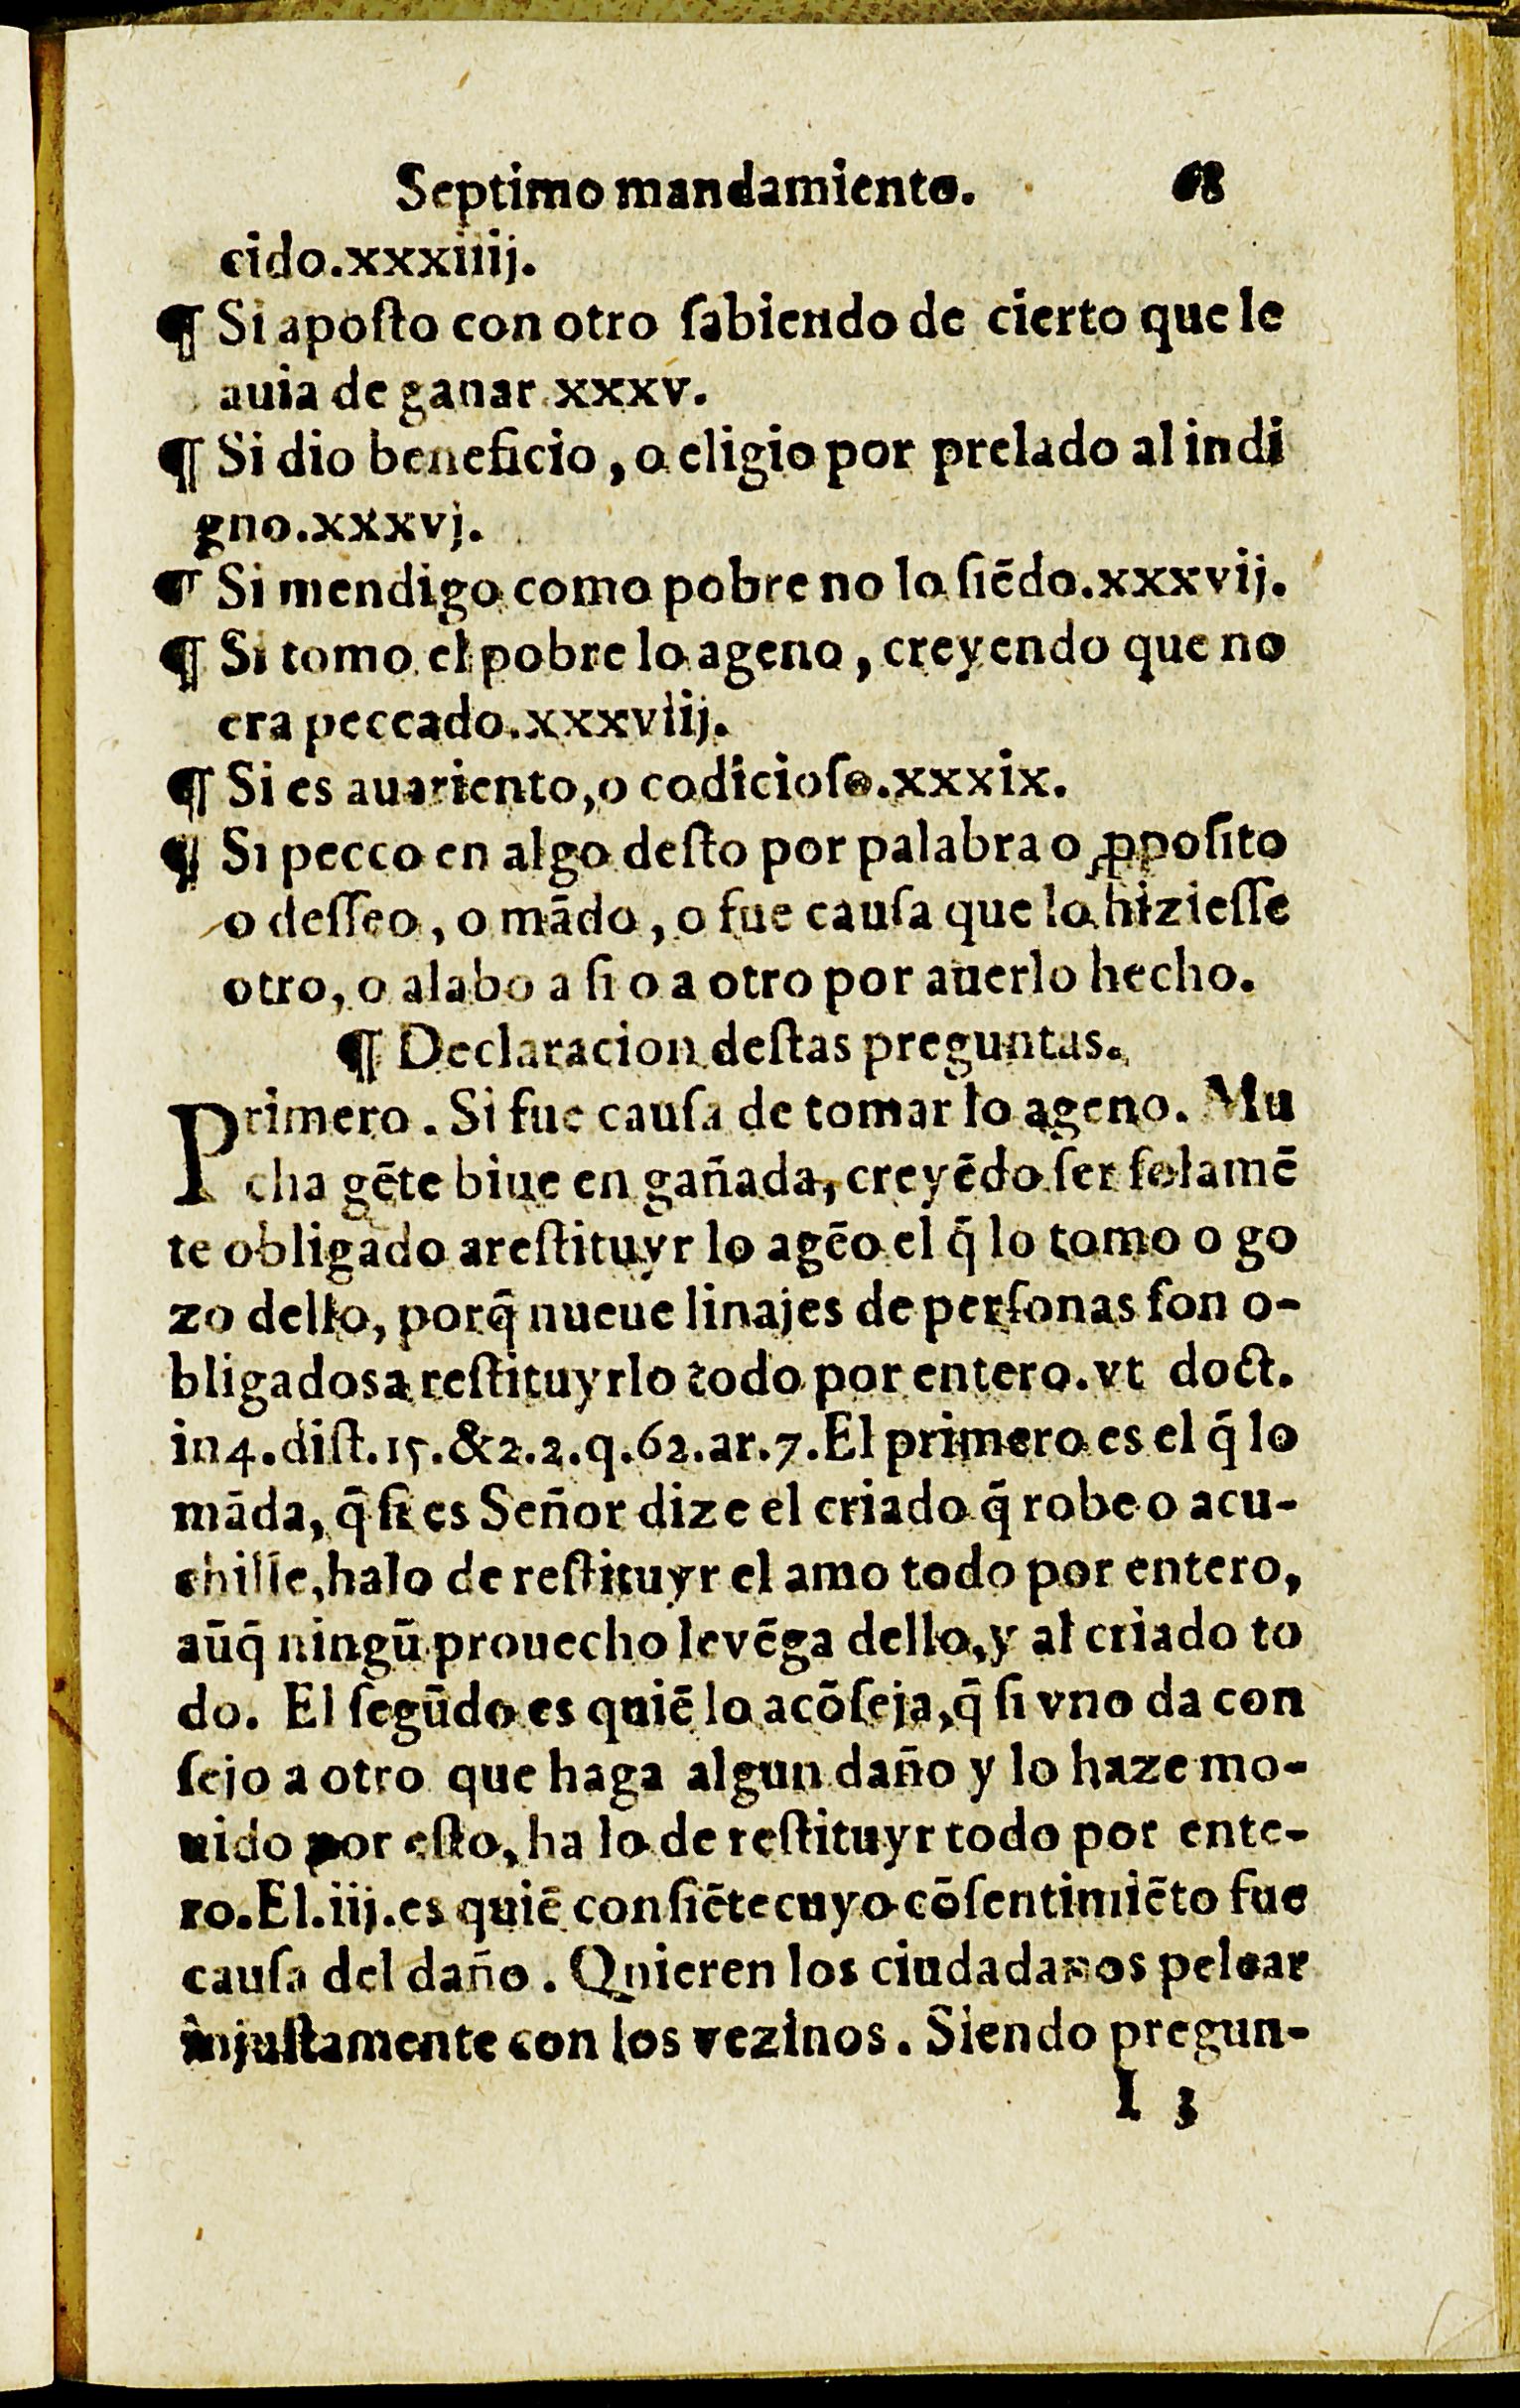 Septimo mandamiento. 68
cido.xxxiiij.
¶ Si aposto con otro sabiendo de cierto que le
auia de ganar.xxxv.
¶ Si dio beneficio, o eligio por prelado al indi
gno.xxxvj.
¶ Si mendigo como pobre no lo siēdo.xxxvij.
¶ Si tomo el pobre lo ageno, creyendo que no
era peccado.xxxviij.
¶ Si es auariento, o codicioso.xxxix.
¶ Si pecco en algo desto por palabra o ꝓposito
o desseo, o mādo, o fue causa que lo hiziesse
otro, o alabo a si o a otro por auerlo hecho.
¶ Declaracion destas preguntas.
Primero. Si fue causa de tomar lo ageno. Mu
cha gēte biue en gañada, creyēdo ser solamē
te obligado arestituyr lo agēo el q̄ lo tomo o go
zo dello, porq̄ nueue linajes de personas son o-
bligadosa restituyrlo todo por entero. vt doct.
in 4. dist. 15. & 2.2.q.62.ar.7. El primero es el q̄ lo
māda, q̄ si es Señor dize el criado q̄ robe o acu-
chille, halo de restituyr el amo todo por entero,
aūq̄ ningū prouecho le vēga dello, y al criado to
do. El segūdo es quiē lo acōseja, q̄ si vno da con
sejo a otro que haga algun daño y lo haze mo-
uido por esto, ha lo de restituyr todo por ente-
ro. El.iij.es quiē consiēte cuyo cōsentimiēto fue
causa del daño. Quieren los ciudadanos pelear
injustamente con los vezinos. Siendo pregun-
I 3